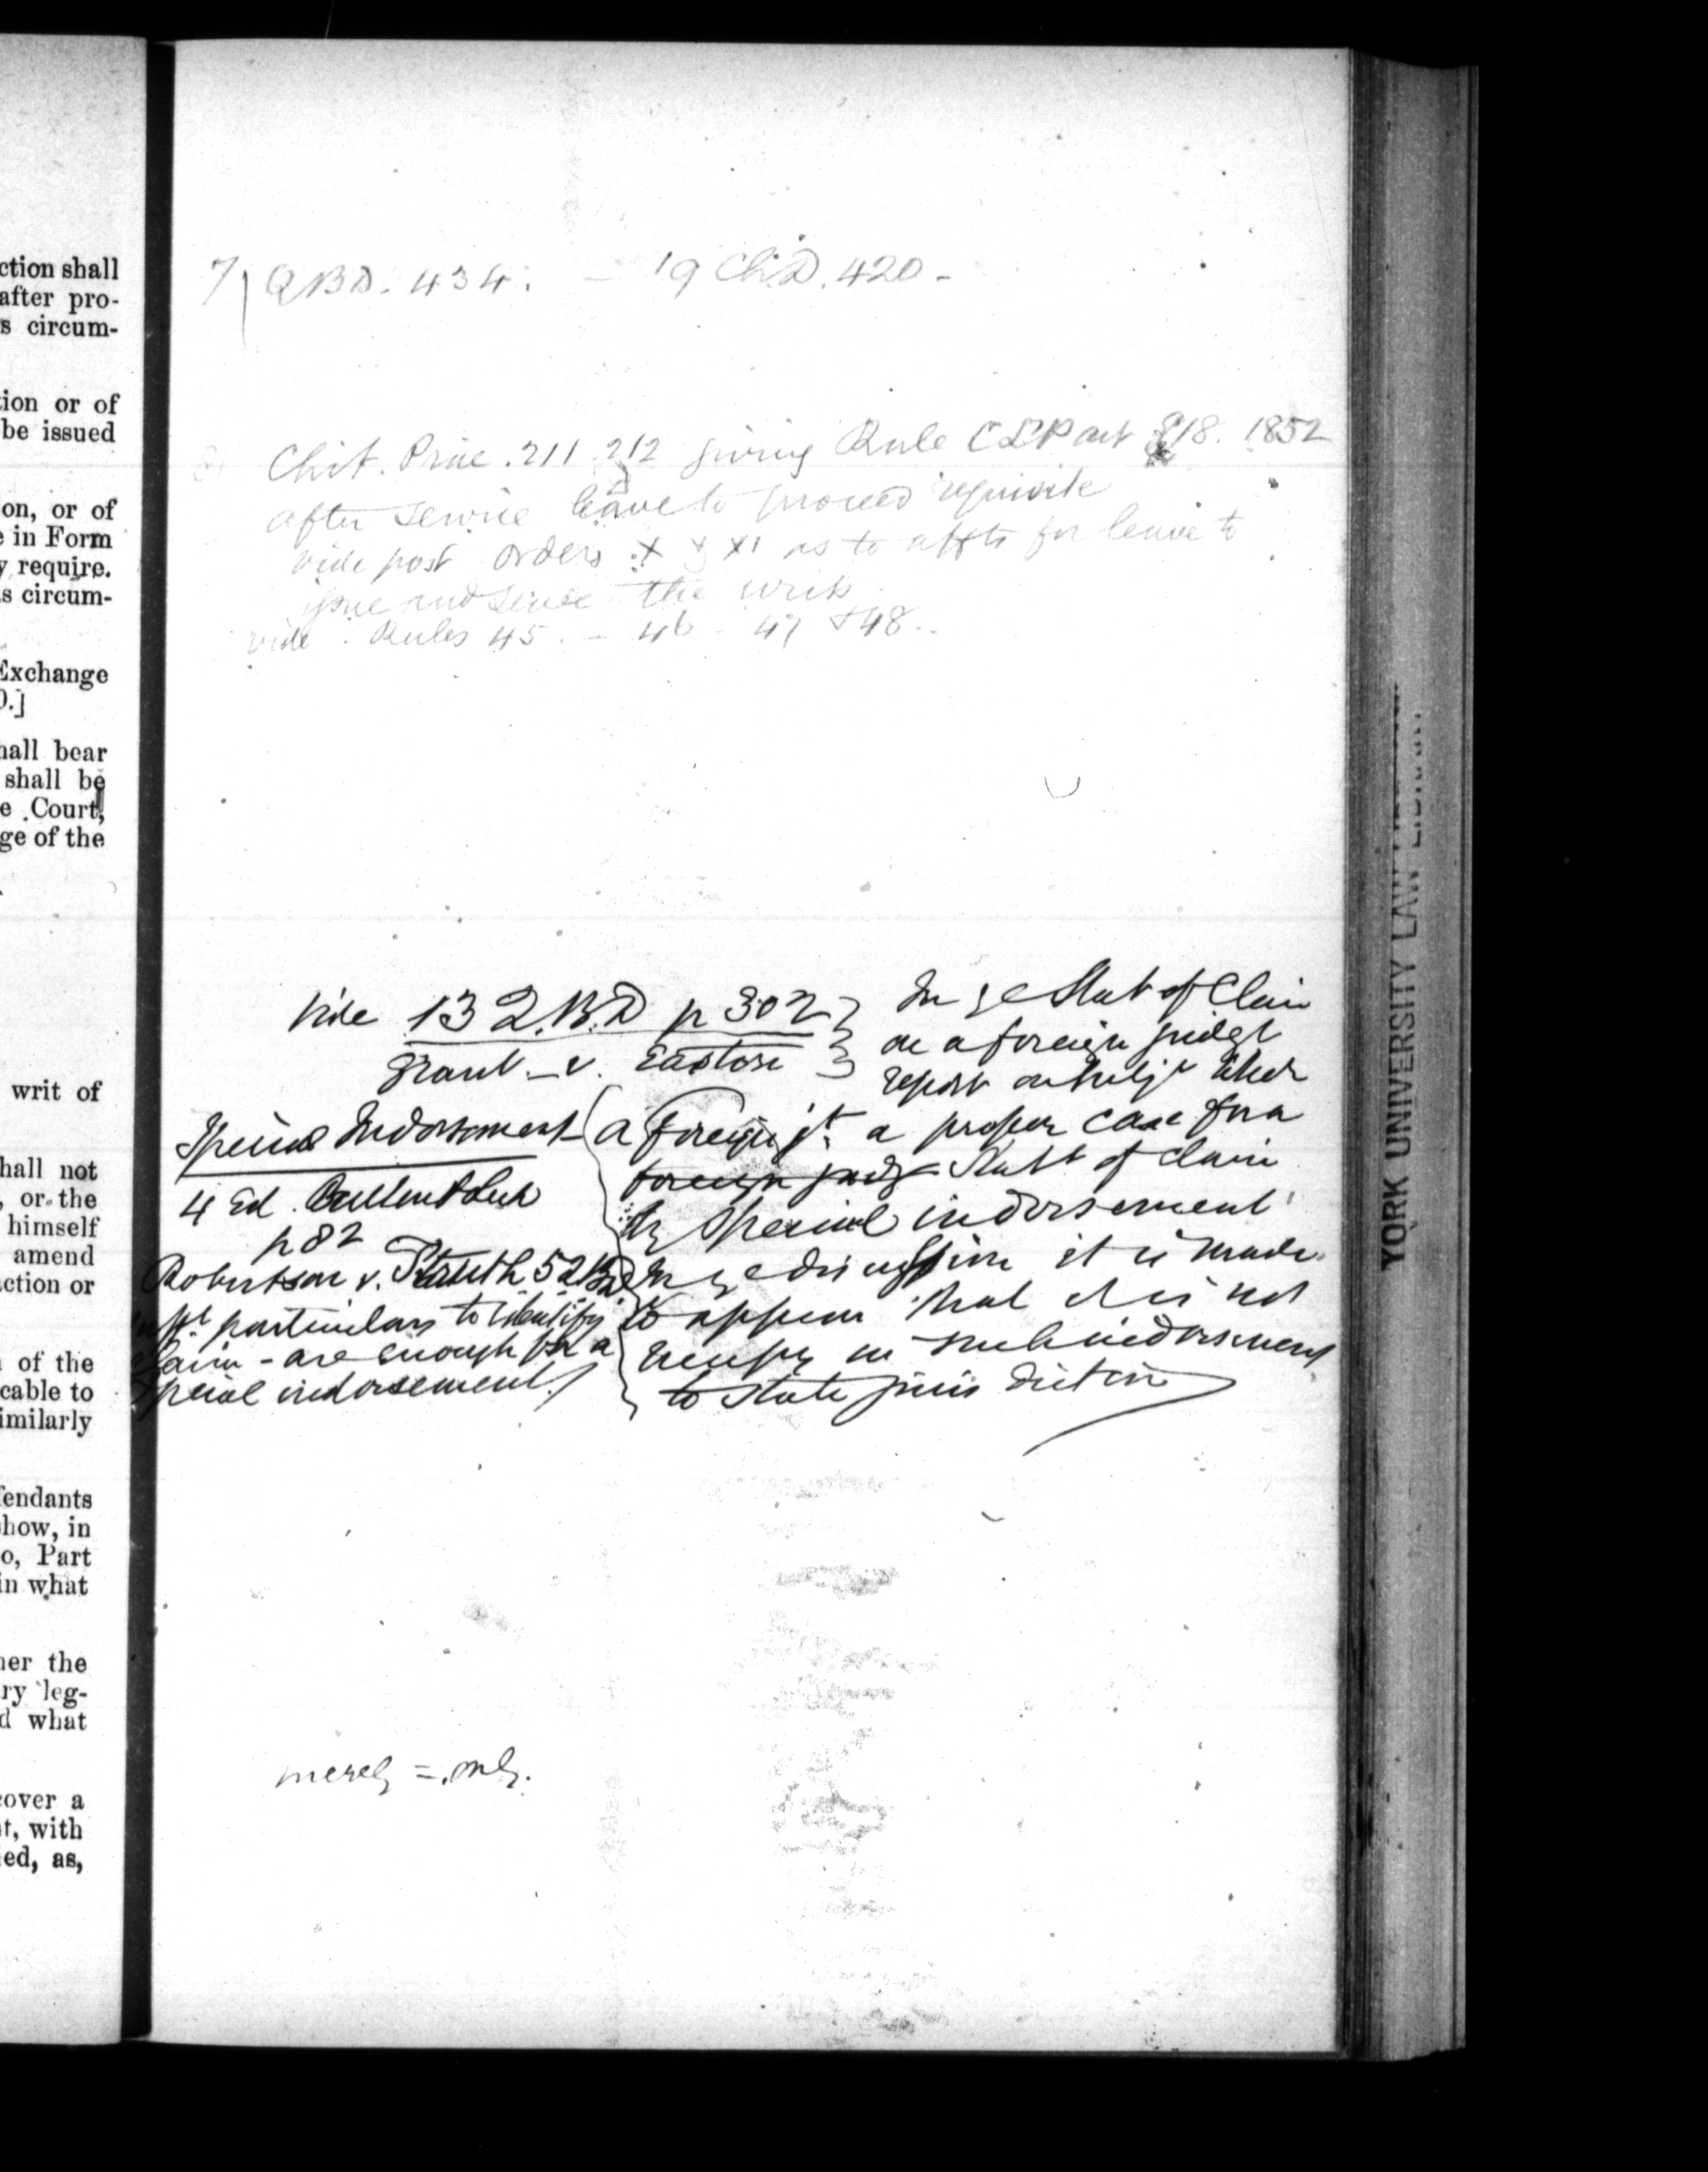 ction shall
after pro-
s circum-
tion or of
be issued
on, or of
e in Form
y require.
s circum-
Exchange
0.]
hall bear
shall be
e Court,
ge of the
writ of
hall not
, or the
himself
amend
ction or
of the
cable to
imilarly
fendants
show, in
o, Part
in what
her the
ry leg-
d what
cover a
t, with
ed, as,
7) QBD. 434. — 19 Ch.D. 420 -
8) Chit. Prac. 211.212 giving Rule CLP act §18. 1852
after service leave to proceed requisite
vide post orders X & XI as to affts for leave to
issue and serve the writ
vide. Rules 45. - 46 - 47 + 48..
Vide 13 Q.B.D p 302
Grant - v. Easton
Stat of Claim
on a foreign judgt
report
Special Indorsement
4 Ed. Bullen & Leake
p 82
Robertson v. Struth 5 QB
particulars to identify
claim - are enough for a
special indorsement
a foreign jt. a proper case for a
foreign judg Statt of claim
by special indorsement
discussion it is made
to appear that it is not
necessy in such indorsement
to state jurisdiction
merely = mly.
YORK UNIVERSITY LAW LIBRARY